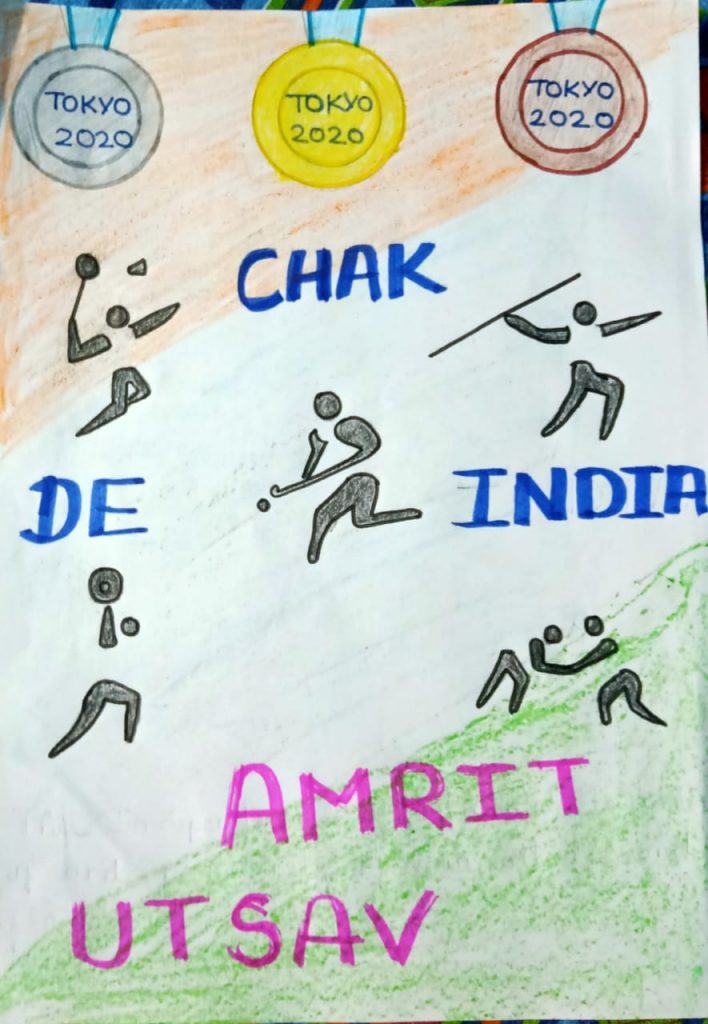 TOKYO
2020
TOKYO
2020
TOKYO
2020
CHAK
DE INDIA
AMRIT
UTSAV